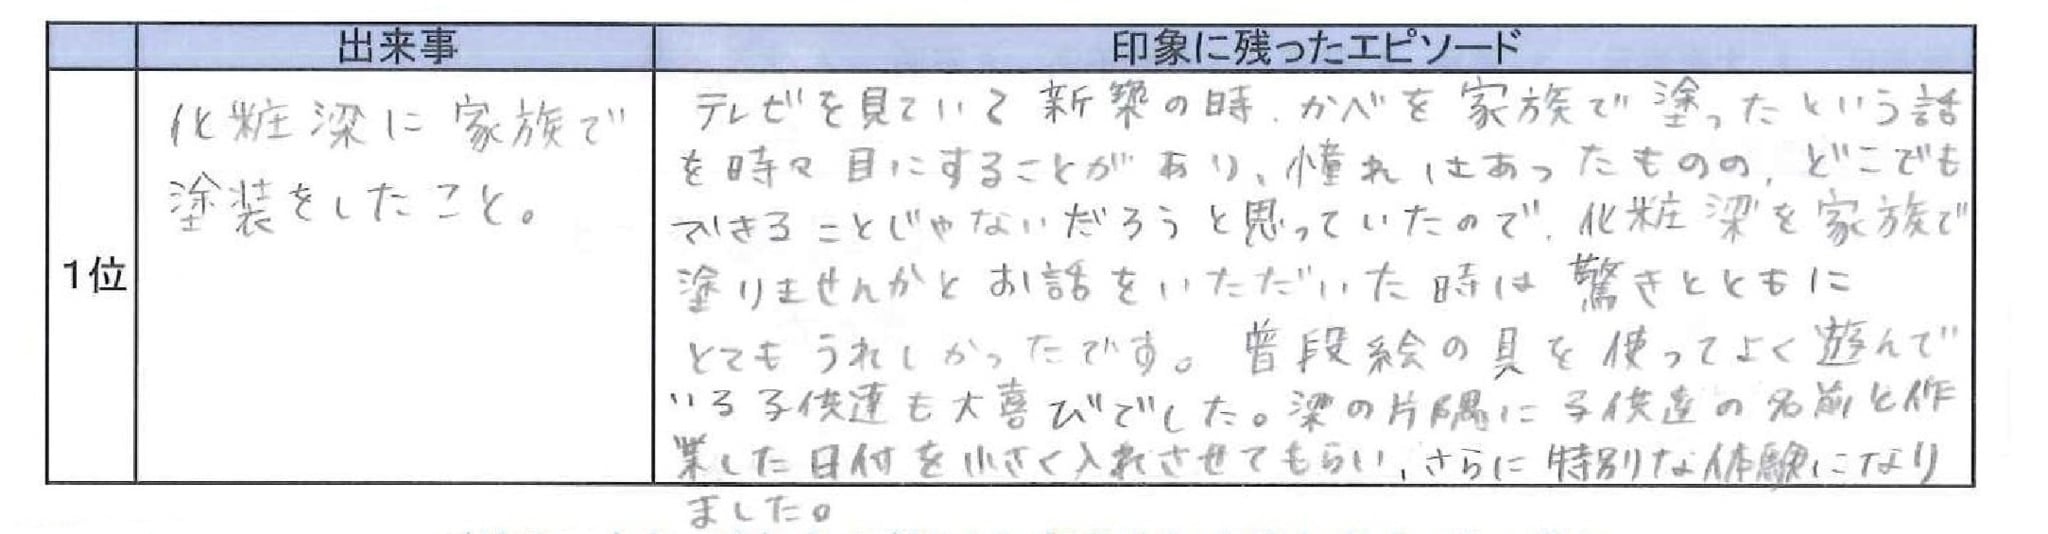 出来事 印象に残ったエピソード
1位
化粧梁に家族で
塗装をしたこと。
テレビを見ていて新築の時、かべを家族で塗ったという話
を時々目にすることがあり、憧れはあったものの、どこでも
できることじゃないだろうと思っていたので、化粧梁を家族で
塗りませんかとお話をいただいた時は驚きとともに
とてもうれしかったです。普段絵の具を使ってよく遊んで
いる子供達も大喜びでした。梁の片隅に子供達の名前と作
業した日付を小さく入れさせてもらい、さらに特別な体験になり
ました。